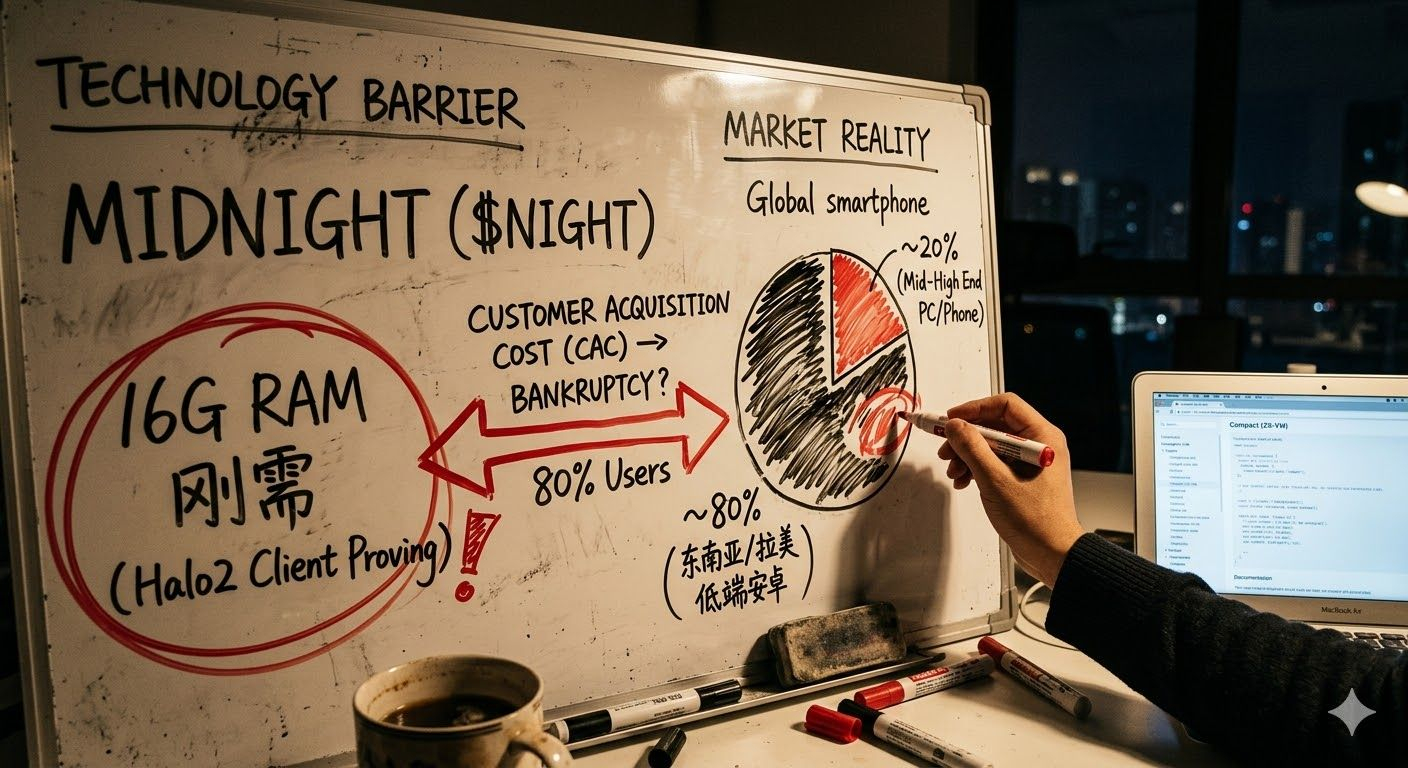 TECHNOLOGY BARRIER
MIDNIGHT ($NIGHT)
16G RAM
刚需
(Halo2 Client Proving)
!
CUSTOMER ACQUISITION
COST (CAC) →
BANKRUPTCY?
80% Users
MARKET REALITY
Global smartphone
~20%
(Mid-High End
PC/Phone)
~80%
(东南亚/拉美
低端安卓)
Compact (Z8-VW)
Documentation
MacBook Air